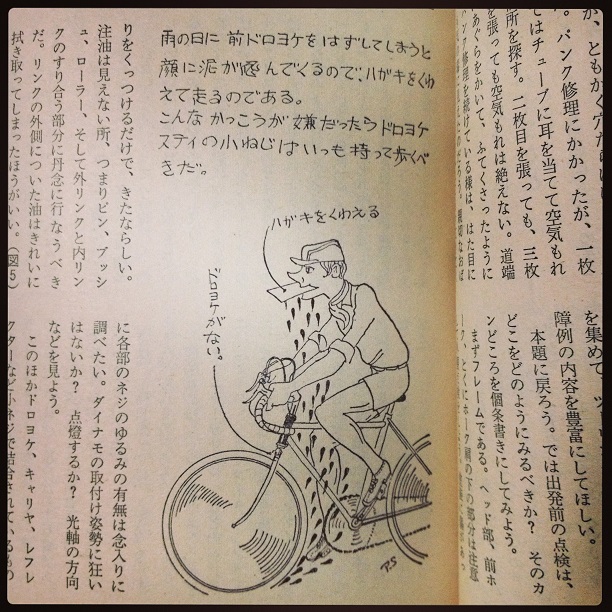 が、ともかく穴
。パンク修理にかかったが、一枚
てはチューブに耳を当てて空気もれ
所を探す。二枚目を張っても、三枚
を張っても空気もれは絶えない。道端
あぐらをかいて、ふてくさったように
ンク修理を続けている様は、はた目に
を集めて、
障例の内容を豊富にしてほしい。
本題に戻ろう。では出発前の点検は、
どこをどのようにみるべきか? そのカ
ンどころを個条書きにしてみよう。
まずフレームである。ヘッド部、前ホ
の下の部分は注意
雨の日に前ドロヨケをはずしてしまうと
顔に泥が飛んでくるので、ハガキをくわ
えて走るのである。
こんなかっこうが嫌だったらドロヨケ
ステイの小ねじはいつも持って歩くべ
きだ。
ハガキをくわえる
ドロヨケがない。
P.S
りをくっつけるだけで、きたならしい。
注油は見えない所、つまりピン、ブッシ
ュ、ローラー、そして外リンクと内リン
クのすり合う部分に丹念に行なうべき
だ。リンクの外側についた油はきれいに
拭き取ってしまったほうがいい。(図5)
に各部のネジのゆるみの有無は念入りに
調べたい。ダイナモの取付け姿勢に狂い
はないか? 点燈するか? 光軸の方向
などを見よう。
このほかドロヨケ、キャリヤ、レフレ
クターなど小ネジで結合されているもの